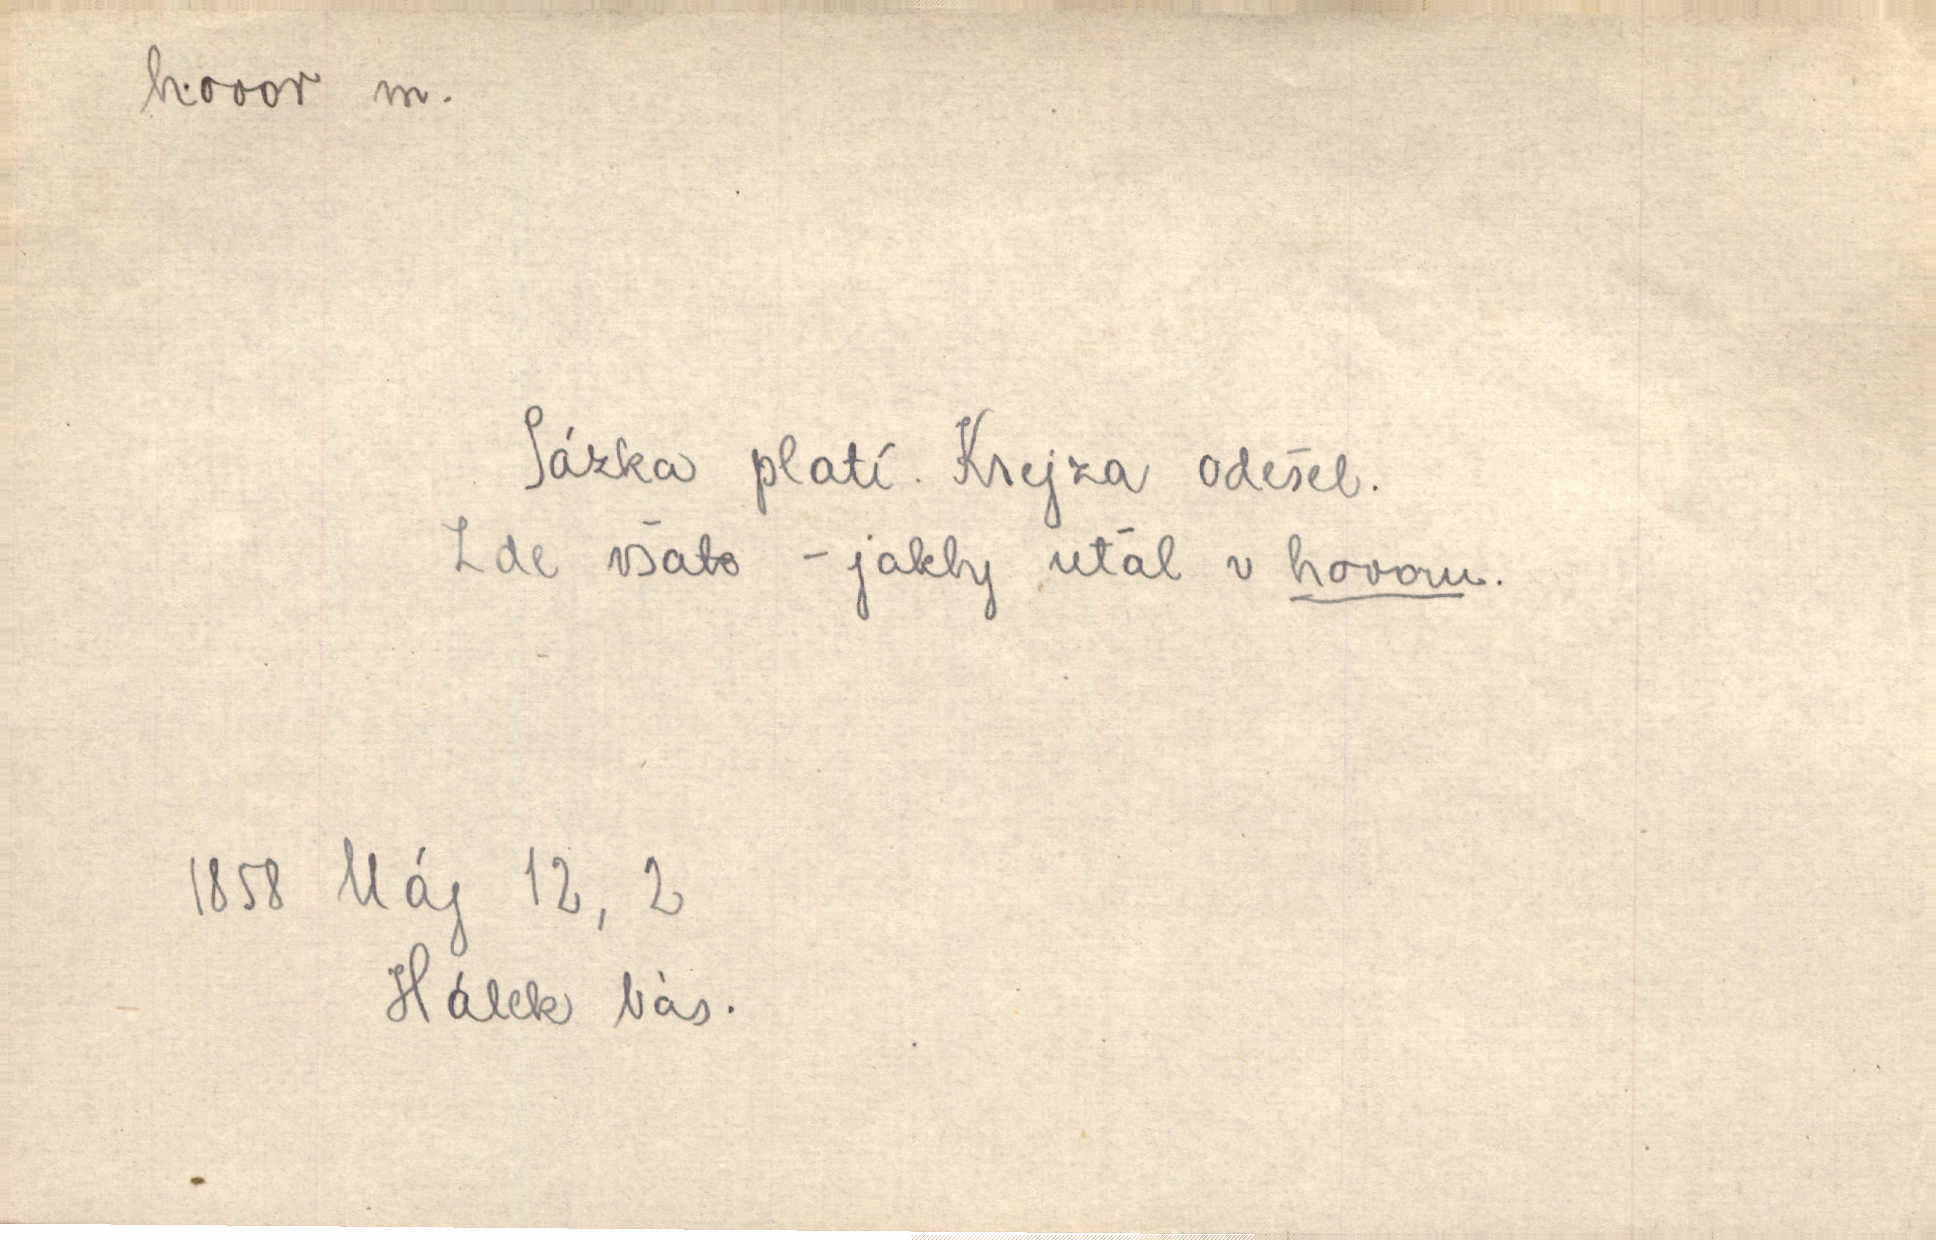 hovor m.
Sázka platí. Krejza odešel.
Zde všato – jakby uťal v hovoru.
1858 Máj 12, 2
Hálek Vás.